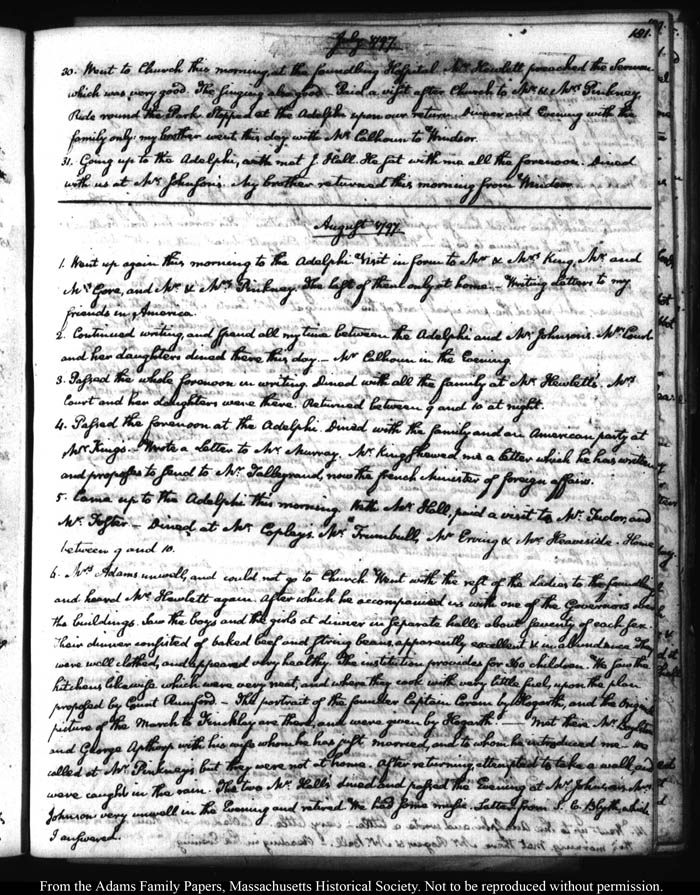 July 1797.
181.
30. Went to Church this morning, at the foundling Hospital. Mr. Hewlett preached the Sermon
which was very good. The singing also good. Paid a visit after Church to Mr. & Mrs. Pinkney.
Ride round the Park. Stopped at the Adelphi upon our return. Dinner and Evening with the
family only. my brother went this day with Mr. Calhoun to Windsor.
31. Going up to the Adelphi, met J. Hall. He sat with me all the forenoon. Dined
with us at Mr. Johnson's. My brother returned this morning from Windsor.
August 1797.
1. Went up again this morning to the Adelphi. Visit in form to Mr. & Mrs. King, Mr. and
Mrs. Gore, and Mr. & Mrs. Pinkney. The last of them only at home. – Writing letters to my
friends in America.
2. Continued writing, and spend all my time between the Adelphi and Mr. Johnson's. Mrs. Court
and her daughters dined there this day. – Mr. Calhoun in the Evening.
3. Passed the whole forenoon in writing. Dined with all the family at Mr. Hewlett's. Mrs.
Court and her daughters were there. Returned between 9 and 10 at night.
4. Passed the forenoon at the Adelphi. Dined with the family and an American party at
Mr. King's. – Wrote a letter to Mr. Murray. Mr. King shewed me a letter which he has written
and proposes to send to Mr. Talleyrand, now the french Minister of foreign affairs.
5. Came up to the Adelphi this morning. With Mr. Hall, paid a visit to Mr. Tudor, and
Mr. Foster – Dined at Mr. Copley's. Mr. Trumbull, Mr. Erving & Mr. Heaveside. Home
between 9 and 10.
6. Mrs. Adams unwell, and could not go to Church. Went with the rest of the Ladies to the foundling
and heard Mr. Hewlett again. After which he accompanied us with one of the Governors over
the buildings. Saw the boys and the girls at dinner in separate halls about seventy of each sex.
Their dinner consisted of baked beef and string beans, apparently excellent & in abundance. They
were well clothed, and appeared very healthy. The institution provides for 360 children. We saw the
kitchens likewise which were very neat, and where they cook with very little fuel, upon the plan
proposed by Count Rumford. – The portrait of the founder Captain Coram by Hogarth, and the original
picture of the March to Finchley are there, and were given by Hogarth. – Met there Mr. Boylston
and George Apthorp with his wife whom he has just married, and to whom he introduced me. We
called at Mr. Pinkney's but they were not at home. After returning, attempted to take a walk, and
were caught in the rain. The two Mr. Halls dined and passed the Evening at Mr. Johnson's. Mrs.
Johnson very unwell in the Evening and retired. We had some music. Letter from J. C. Blyth, which
I answered.
From the Adams Family Papers, Massachusetts Historical Society. Not to be reproduced without permission.